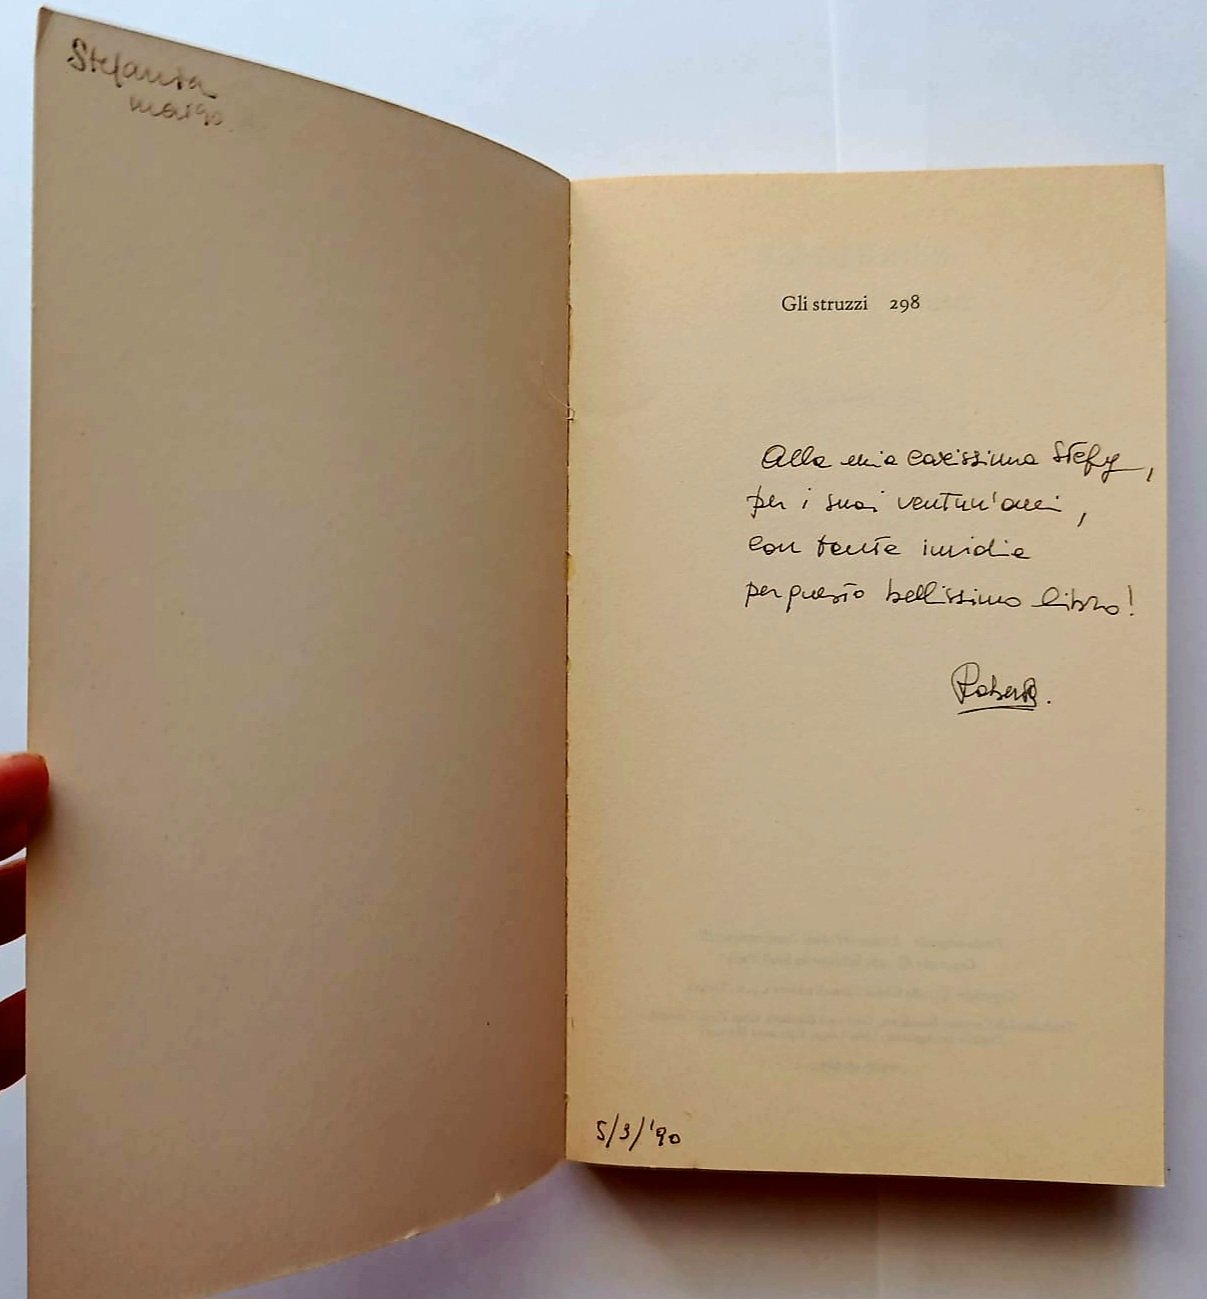 Stefania
marzo
Gli struzzi 298
Alla mia carissima Stefy,
per i suoi ventun'anni,
con tanta invidia
per questo bellissimo libro!
Roberta.
5/3/'90